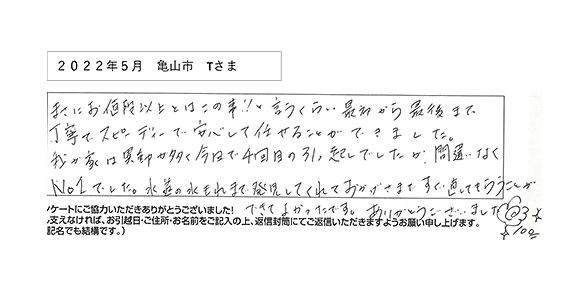 2022年5月 亀山市 Tさま
まさにお値段以上とはこの事!!と言うくらい最初から最後まで
丁寧でスピーディーで安心して任せることができました。
我が家は異動が多く今日で4回目の引っ越しでしたが、間違いなく
No1でした。水道の水もれまで発見してくれておかげさますぐ直してもらうことが
できてよかったです。ありがとうございました
ケートにご協力いただきありがとうございました!
支えなければ、お引越日・ご住所・お名前をご記入の上、返信封筒にてご返信いただきますようお願い申し上げます。
記名でも結構です。)
100